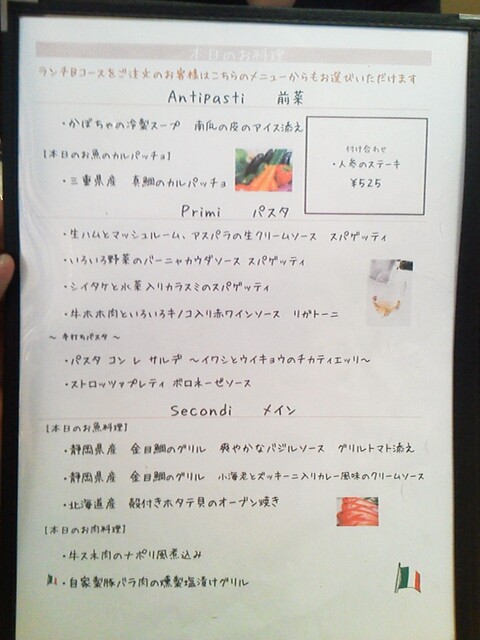 本日のお料理
ランチBコースをご注文のお客様はこちらのメニューからもお選びいただけます
Antipasti 前菜
・かぼちゃの冷製スープ 南瓜の皮のアイス添え
【本日のお魚のカルパッチョ】
・三重県産 真鯛のカルパッチョ
付け合わせ
・人参のステーキ
¥525
Primi パスタ
・生ハムとマッシュルーム、アスパラの生クリームソース スパゲッティ
・いろいろ野菜のバーニャカウダソース スパゲッティ
・シイタケと水菜入りカラスミのスパゲッティ
・牛ホホ肉といろいろキノコ入り赤ワインソース リガトーニ
～ 手打ちパスタ ～
・パスタ コン レ サルデ ～イワシとウイキョウのチカティエッリ～
・ストロッツァプレティ ボロネーゼソース
Secondi メイン
【本日のお魚料理】
・静岡県産 金目鯛のグリル 爽やかなバジルソース グリルトマト添え
・静岡県産 金目鯛のグリル 小海老とズッキーニ入りカレー風味のクリームソース
・北海道産 殻付きホタテ貝のオーブン焼き
【本日のお肉料理】
・牛スネ肉のナポリ風煮込み
・自家製豚バラ肉の燻製塩漬けグリル